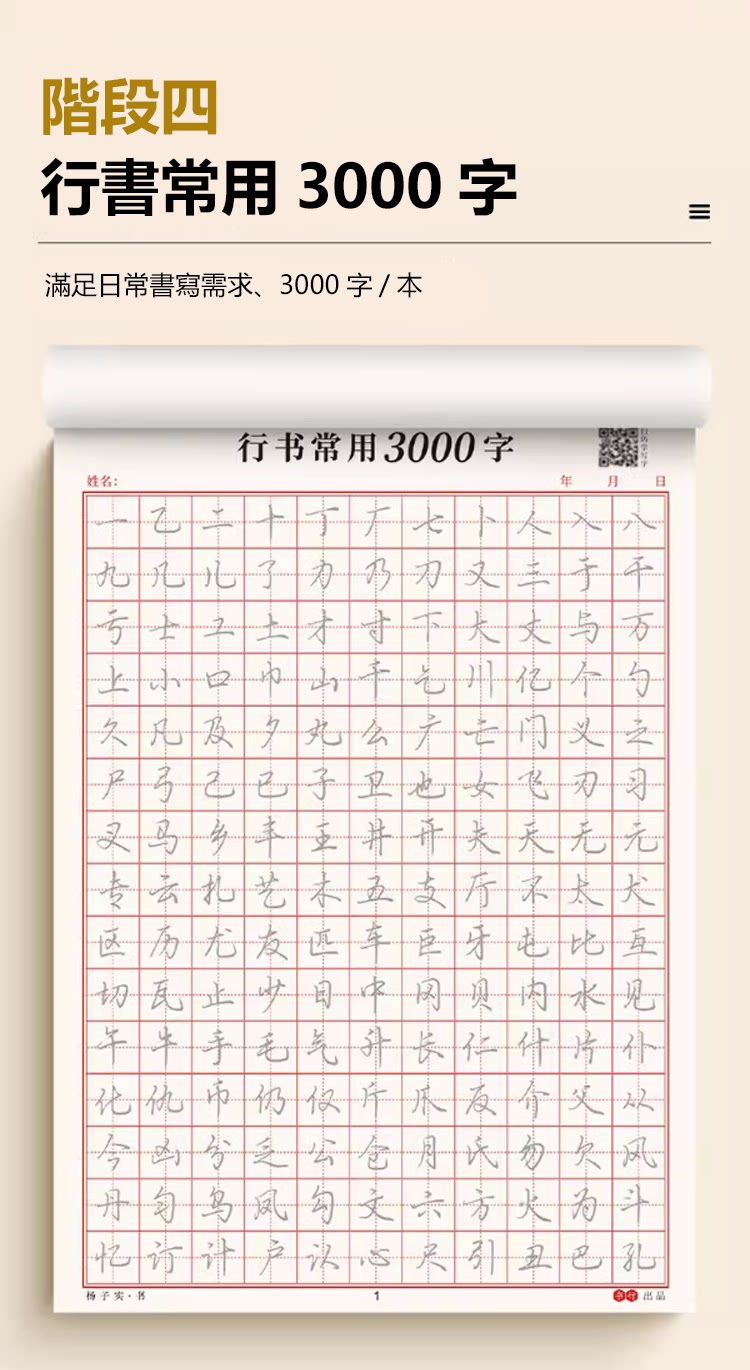 階段四
行書常用 3000 字
滿足日常書寫需求、3000 字 / 本
行书常用3000字
姓名: 年 月 日
一 乙 二 十 丁 厂 七 卜 人 入 八
九 几 儿 了 力 乃 刀 又 三 于 干
亏 士 工 土 才 寸 下 大 丈 与 万
上 小 口 巾 山 千 乞 川 亿 个 勺
久 凡 及 夕 丸 么 广 亡 门 义 之
尸 弓 己 已 子 卫 也 女 飞 刃 习
叉 马 乡 丰 王 井 开 夫 天 无 元
专 云 扎 艺 木 五 支 厅 不 太 犬
区 历 尤 友 匹 车 巨 牙 屯 比 互
切 瓦 止 少 日 中 冈 贝 内 水 见
午 牛 手 毛 气 升 长 仁 什 片 仆
化 仇 币 仍 仅 斤 爪 反 介 父 从
今 凶 分 乏 公 仓 月 氏 勿 欠 风
丹 匀 乌 凤 勾 文 六 方 火 为 斗
忆 订 计 户 认 心 尺 引 丑 巴 孔
杨子实·书 1 出品